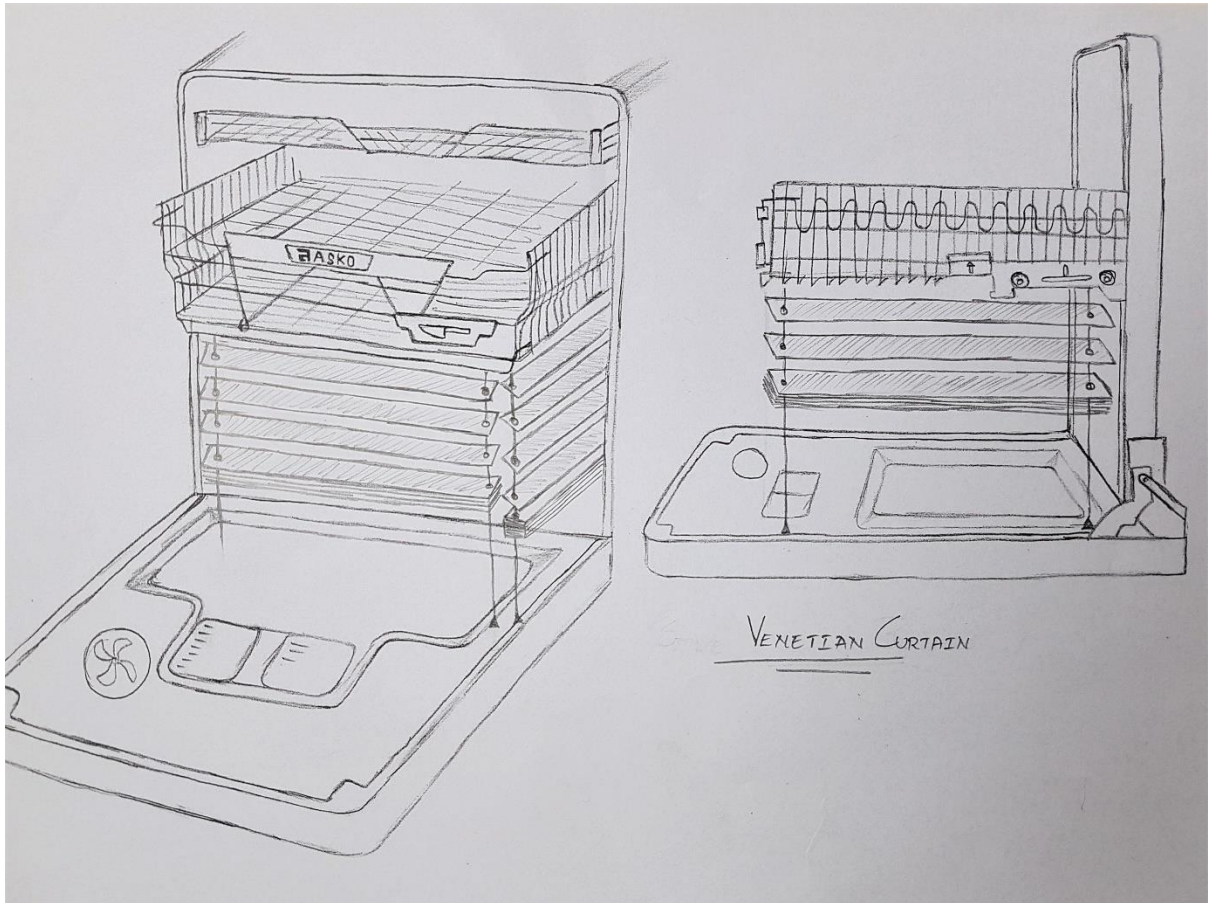 ASKO
VENETIAN CURTAIN